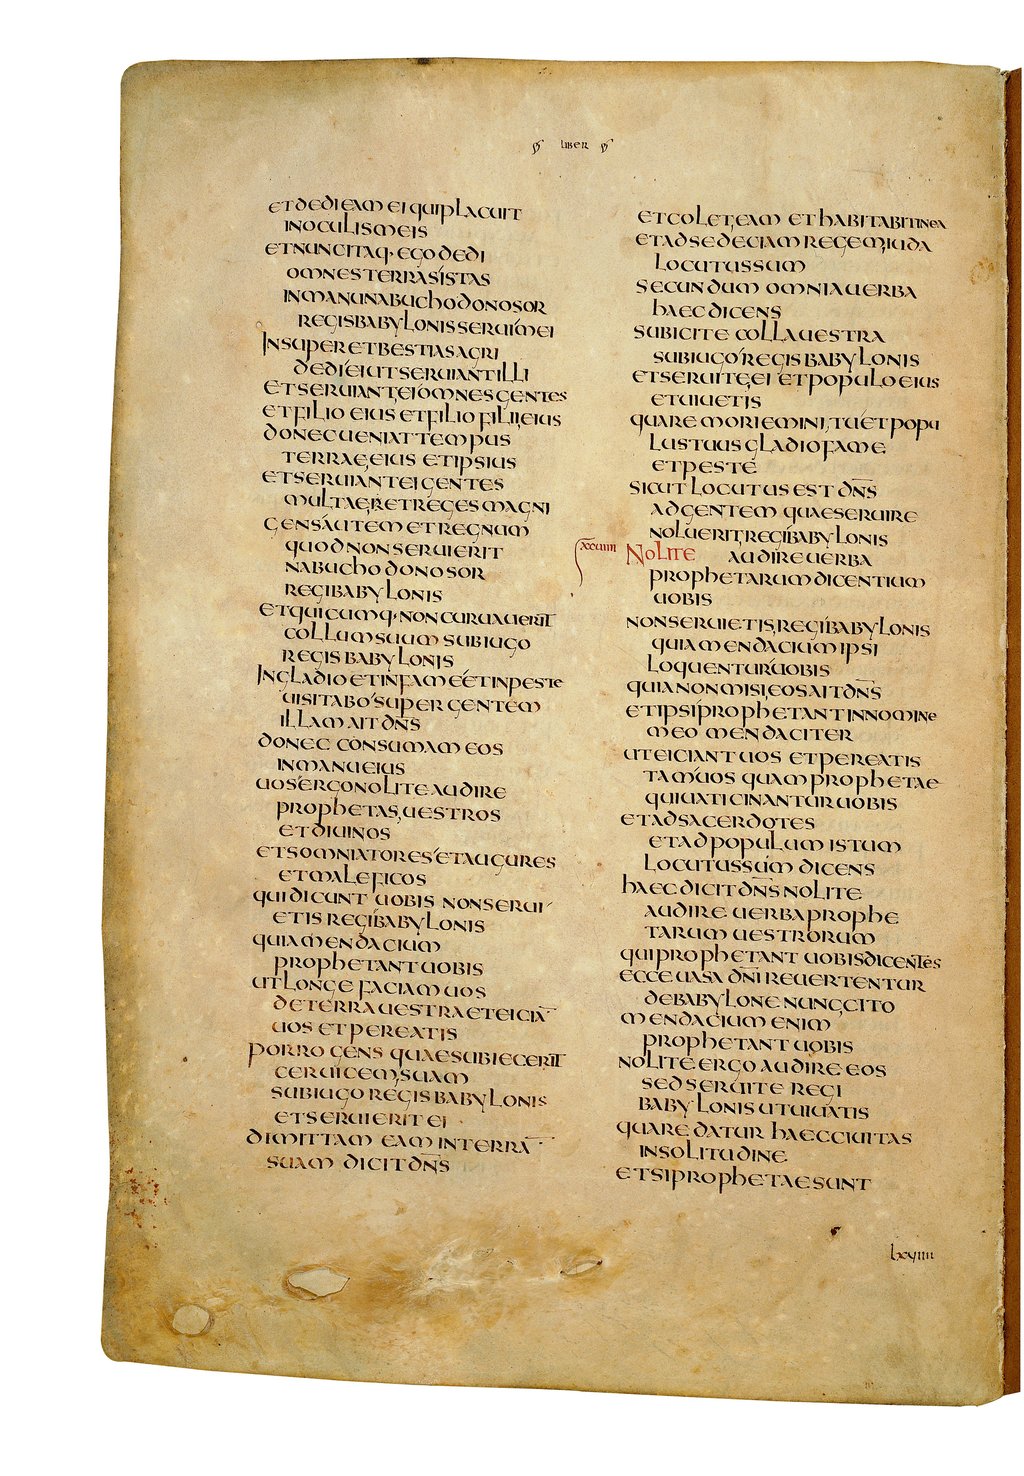 LIBER
ET DEDI EAM EI QUI PLACUIT
IN OCULIS MEIS
ET NUNC ITAQ· EGO DEDI
OMNES TERRAS ISTAS
IN MANU NABUCHODONOSOR
REGIS BABYLONIS SERUI MEI
INSUPER ET BESTIAS AGRI
DEDI EI UT SERUIANT ILLI
ET SERUIANT EI OMNES GENTES
ET FILIO EIUS ET FILIO FILII EIUS
DONEC UENIAT TEMPUS
TERRAE EIUS ET IPSIUS
ET SERUIANT EI GENTES
MULTAE ET REGES MAGNI
GENS AUTEM ET REGNUM
QUOD NON SERUIERIT
NABUCHODONOSOR
REGI BABYLONIS
ET QUICUMQ· NON CURUAUERIT
COLLUM SUUM SUB IUGO
REGIS BABYLONIS
IN GLADIO ET IN FAME ET IN PESTE
UISITABO SUPER GENTEM
ILLAM AIT DN̅S
DONEC CONSUMAM EOS
IN MANU EIUS
UOS ERGO NOLITE AUDIRE
PROPHETAS UESTROS
ET DIUINOS
ET SOMNIATORES ET AUGURES
ET MALEFICOS
QUI DICUNT UOBIS NON SERUI
ETIS REGI BABYLONIS
QUIA MENDACIUM
PROPHETANT UOBIS
UT LONGE FACIAM UOS
DE TERRA UESTRA ET EICIA̅
UOS ET PEREATIS
PORRO GENS QUAE SUBIECERIT
CERUICEM SUAM
SUB IUGO REGIS BABYLONIS
ET SERUIERIT EI
DIMITTAM EAM IN TERRA̅
SUAM DICIT DN̅S
ET COLET EAM ET HABITABIT IN EA
ET AD SEDECIAM REGEM IUDA
LOCUTUS SUM
SECUNDUM OMNIA UERBA
HAEC DICENS
SUBICITE COLLA UESTRA
SUB IUGO REGIS BABYLONIS
ET SERUITE EI ET POPULO EIUS
ET UIUETIS
QUARE MORIEMINI TU ET POPU
LUS TUUS GLADIO FAME
ET PESTE
SICUT LOCUTUS EST DN̅S
AD GENTEM QUAE SERUIRE
NOLUERIT REGI BABYLONIS
XXVIIII NOLITE AUDIRE UERBA
PROPHETARUM DICENTIUM
UOBIS
NON SERUIETIS REGI BABYLONIS
QUIA MENDACIUM IPSI
LOQUENTUR UOBIS
QUIA NON MISI EOS AIT DN̅S
ET IPSI PROPHETANT IN NOMINE
MEO MENDACITER
UT EICIANT UOS ET PEREATIS
TAM UOS QUAM PROPHETAE
QUI UATICINANTUR UOBIS
ET AD SACERDOTES
ET AD POPULUM ISTUM
LOCUTUS SUM DICENS
HAEC DICIT DN̅S NOLITE
AUDIRE UERBA PROPHE
TARUM UESTRORUM
QUI PROPHETANT UOBIS DICENTES
ECCE UASA DN̅I REUERTENTUR
DE BABYLONE NUNC CITO
MENDACIUM ENIM
PROPHETANT UOBIS
NOLITE ERGO AUDIRE EOS
SED SERUITE REGI
BABYLONIS UT UIUATIS
QUARE DATUR HAEC CIUITAS
IN SOLITUDINE
ET SI PROPHETAE SUNT